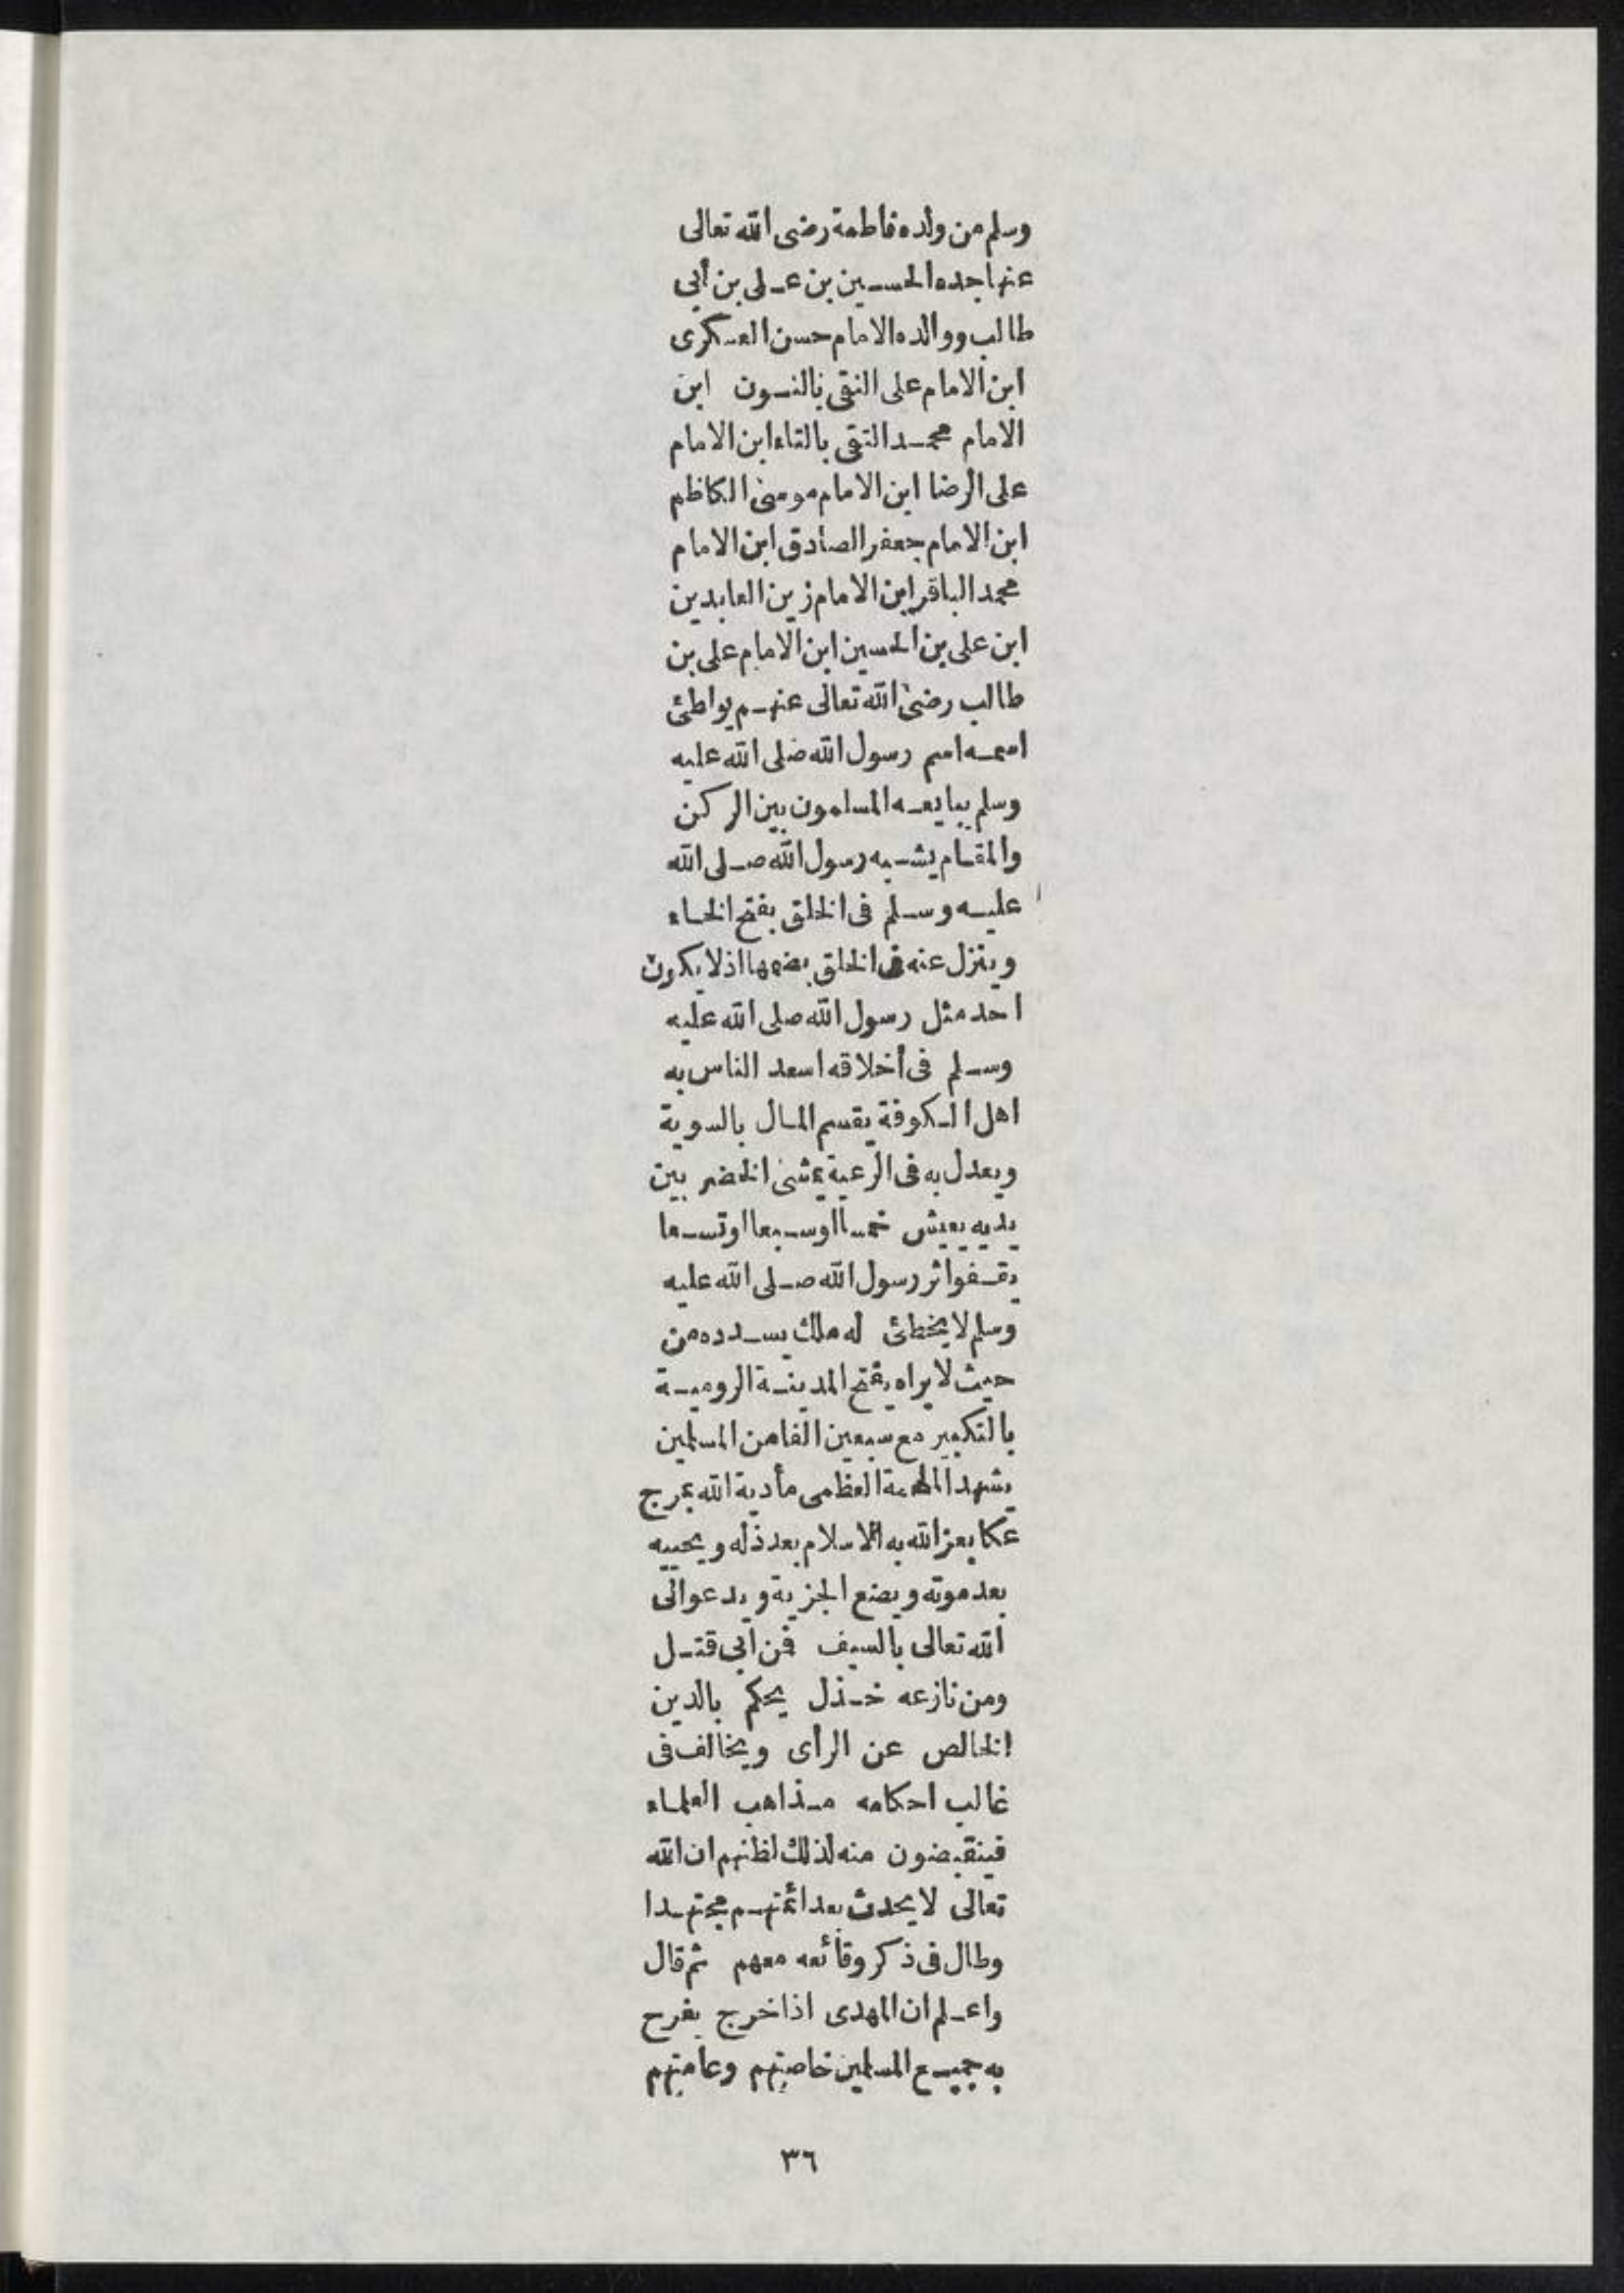 وسلم من ولده فاطمة رضى الله تعالى
عنها جده الحسين بن على بن أبى
طالب ووالده الامام حسن العسكرى
ابن الامام على النقى بالنون ابن
الامام محمد التقى بالتاء ابن الامام
على الرضا ابن الامام موسى الكاظم
ابن الامام جعفر الصادق ابن الامام
محمد الباقر ابن الامام زين العابدين
ابن على بن الحسين ابن الامام على بن
طالب رضى الله تعالى عنهم يواطئ
اسمه اسم رسول الله صلى الله عليه
وسلم يبايعه المسلمون بين الركن
والمقام يشبه رسول الله صلى الله
عليه وسلم فى الخلق بفتح الخاء
وينزل عنه فى الخلق بضمها اذ لا يكون
احد مثل رسول الله صلى الله عليه
وسلم فى أخلاقه اسعد الناس به
اهل الكوفة يقسم المال بالسوية
ويعدل به فى الرعية يمشى الخضر بين
يديه يعيش خمسا او سبعا او تسعا
يقفوا ثر رسول الله صلى الله عليه
وسلم لا يخطئ له ملك يسدده من
حيث لا يراه يفتح المدينة الرومية
بالتكبير مع سبعين الفا من المسلمين
يشهد الملحمة العظمى مأدبة الله بمرج
عكا يعز الله به الاسلام بعد ذله ويحييه
بعد موته ويضع الجزية ويدعو الى
الله تعالى بالسيف فمن أبى قتل
ومن نازعه خذل يحكم بالدين
الخالص عن الرأى ويخالف فى
غالب احكامه مذاهب العلماء
فينقبضون منه لذلك لظنهم ان الله
تعالى لا يحدث بعد ائمتهم مجتهدا
وطال فى ذكر وقائعه معهم ثم قال
واعلم ان المهدى اذا خرج يفرح
به جميع المسلمين خاصتهم وعامتهم
٣٦